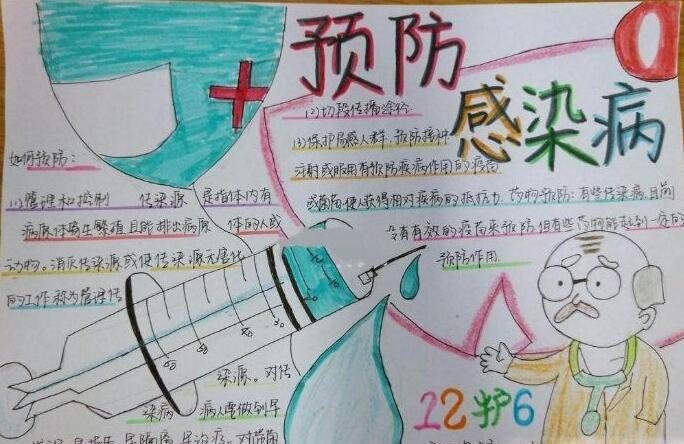 预防
感染病
如何预防:
(1)管理和控制 传染源 是指体内有
病原体生繁殖且能排出病原 体的人或
动物。消灭传染源或使传染源无害化
的工作称为管理传
染源。对传
染病 病人要做到早
(2)切段传播途径
(3)保护易感人群 预防接种
注射或服用有预防疾病作用的疫苗
或菌苗,使人获得相对疾病的抵抗力 药物预防:有些传染病,目前
没有有效的疫苗来预防但有些药物能起到一定的
预防作用
12护6